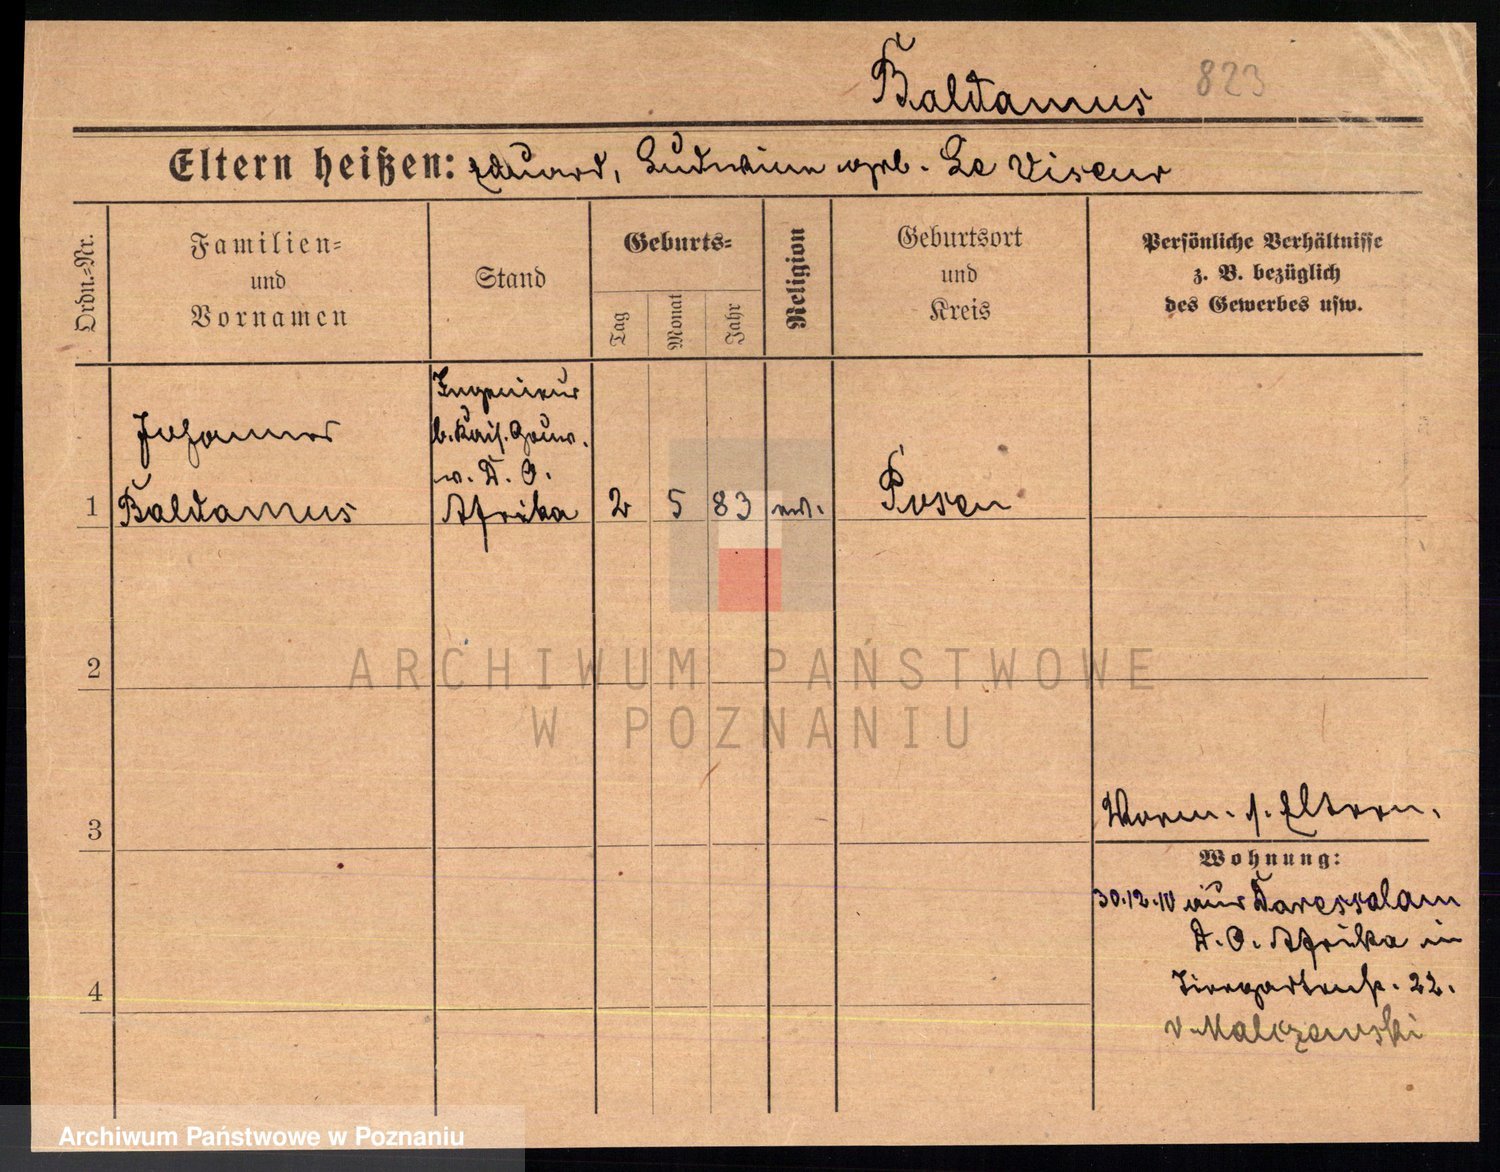 Baldamus 823
Eltern heißen: Eduard, Ludwina geb. Le Viseur
Ordn.-Nr.
Familien-
und
Vornamen
Stand
Geburts-
Tag
Monat
Jahr
Religion
Geburtsort
und
Kreis
Persönliche Verhältnisse
z. B. bezüglich
des Gewerbes usw.
Johannes
Ingenieur
b. Kais. Gouv.
v. D. O.
1 Baldamus Afrika 2 5 83 ev. Posen
2
3
4
Verm. s. Eltern.
Wohnung:
30.12.10 aus Daressalam
D. O. Afrika in
Tiergartenstr. 22.
v. Malczewski
ARCHIWUM PAŃSTWOWE
W POZNANIU
Archiwum Państwowe w Poznaniu